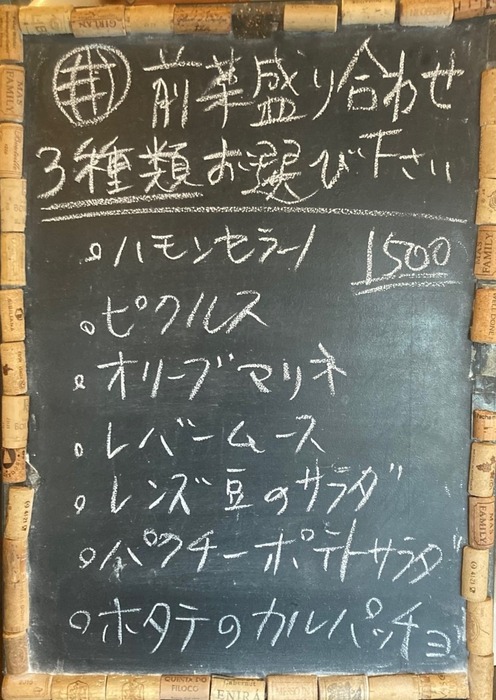 前菜盛り合わせ
3種類お選び下さい
ハモンセラーノ 1500
ピクルス
オリーブマリネ
レバームース
レンズ豆のサラダ
パクチーポテトサラダ
ホタテのカルパッチョ